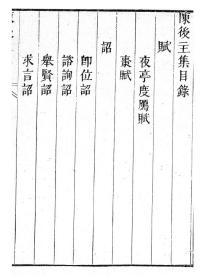 陳後主集目錄
賦
夜亭度鴈賦
棗賦
詔
卽位詔
諮詢詔
舉賢詔
求言詔